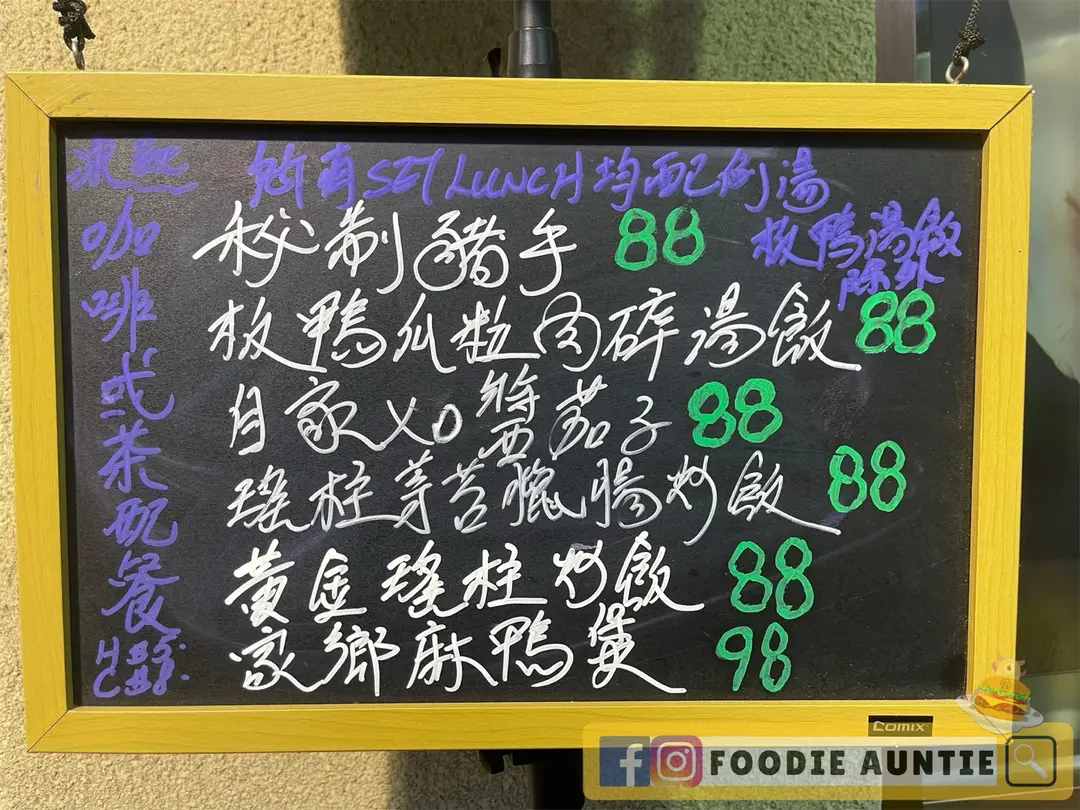 所有SET LUNCH均配例湯
板鴨湯飯
除外
秘制豬手 88
板鴨瓜粒肉碎湯飯 88
自家XO醬茄子 88
瑤柱芽苔臘腸炒飯 88
黃金瑤柱炒飯 88
家鄉麻鴨煲 98
咖啡或茶配餐
COMIX
FOODIE AUNTIE